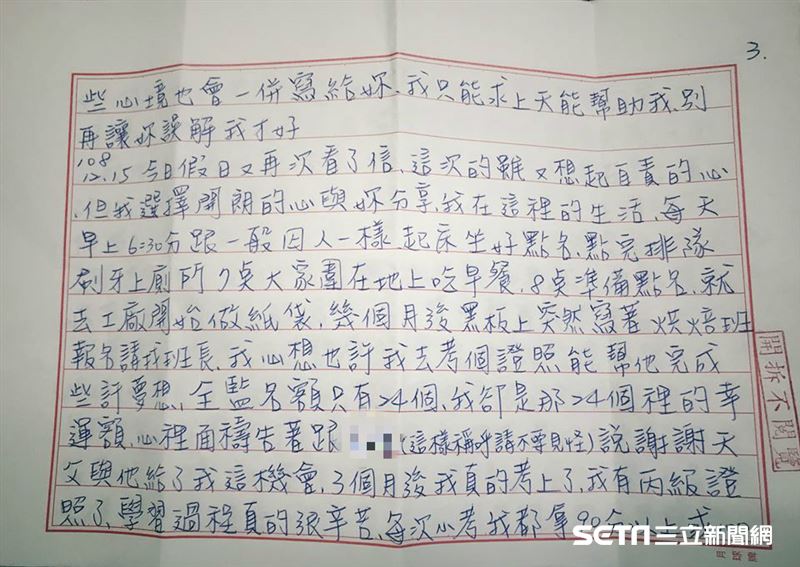 3.
些心境也會一併寫給妳、我只能求上天能幫助我、別
再讓妳誤解我才好
108
12.15 今日假日又再次看了信、這次的雖又想起自責的心
、但我選擇開朗的心與妳分享、我在這裡的生活、每天
早上6:30分跟一般囚人一樣起床坐好點名、點完排隊
刷牙上廁所 7點大家圍在地上吃早餐、8點準備點名、就
去工廠開始做紙袋、幾個月後黑板上突然寫著 烘焙班
報名請找班長、我心想也許我去考個證照能幫他完成
些許夢想、全監名額只有24個、我卻是那24個裡的幸
運額、心裡面禱告著跟 (這樣稱呼請不要見怪)說謝謝天
父與他給了我這機會、3個月後我真的考上了、我有丙級證
照了、學習過程真的很辛苦、每次小考我都拿90分以上
開拆不閱覽
SETN 三立新聞網